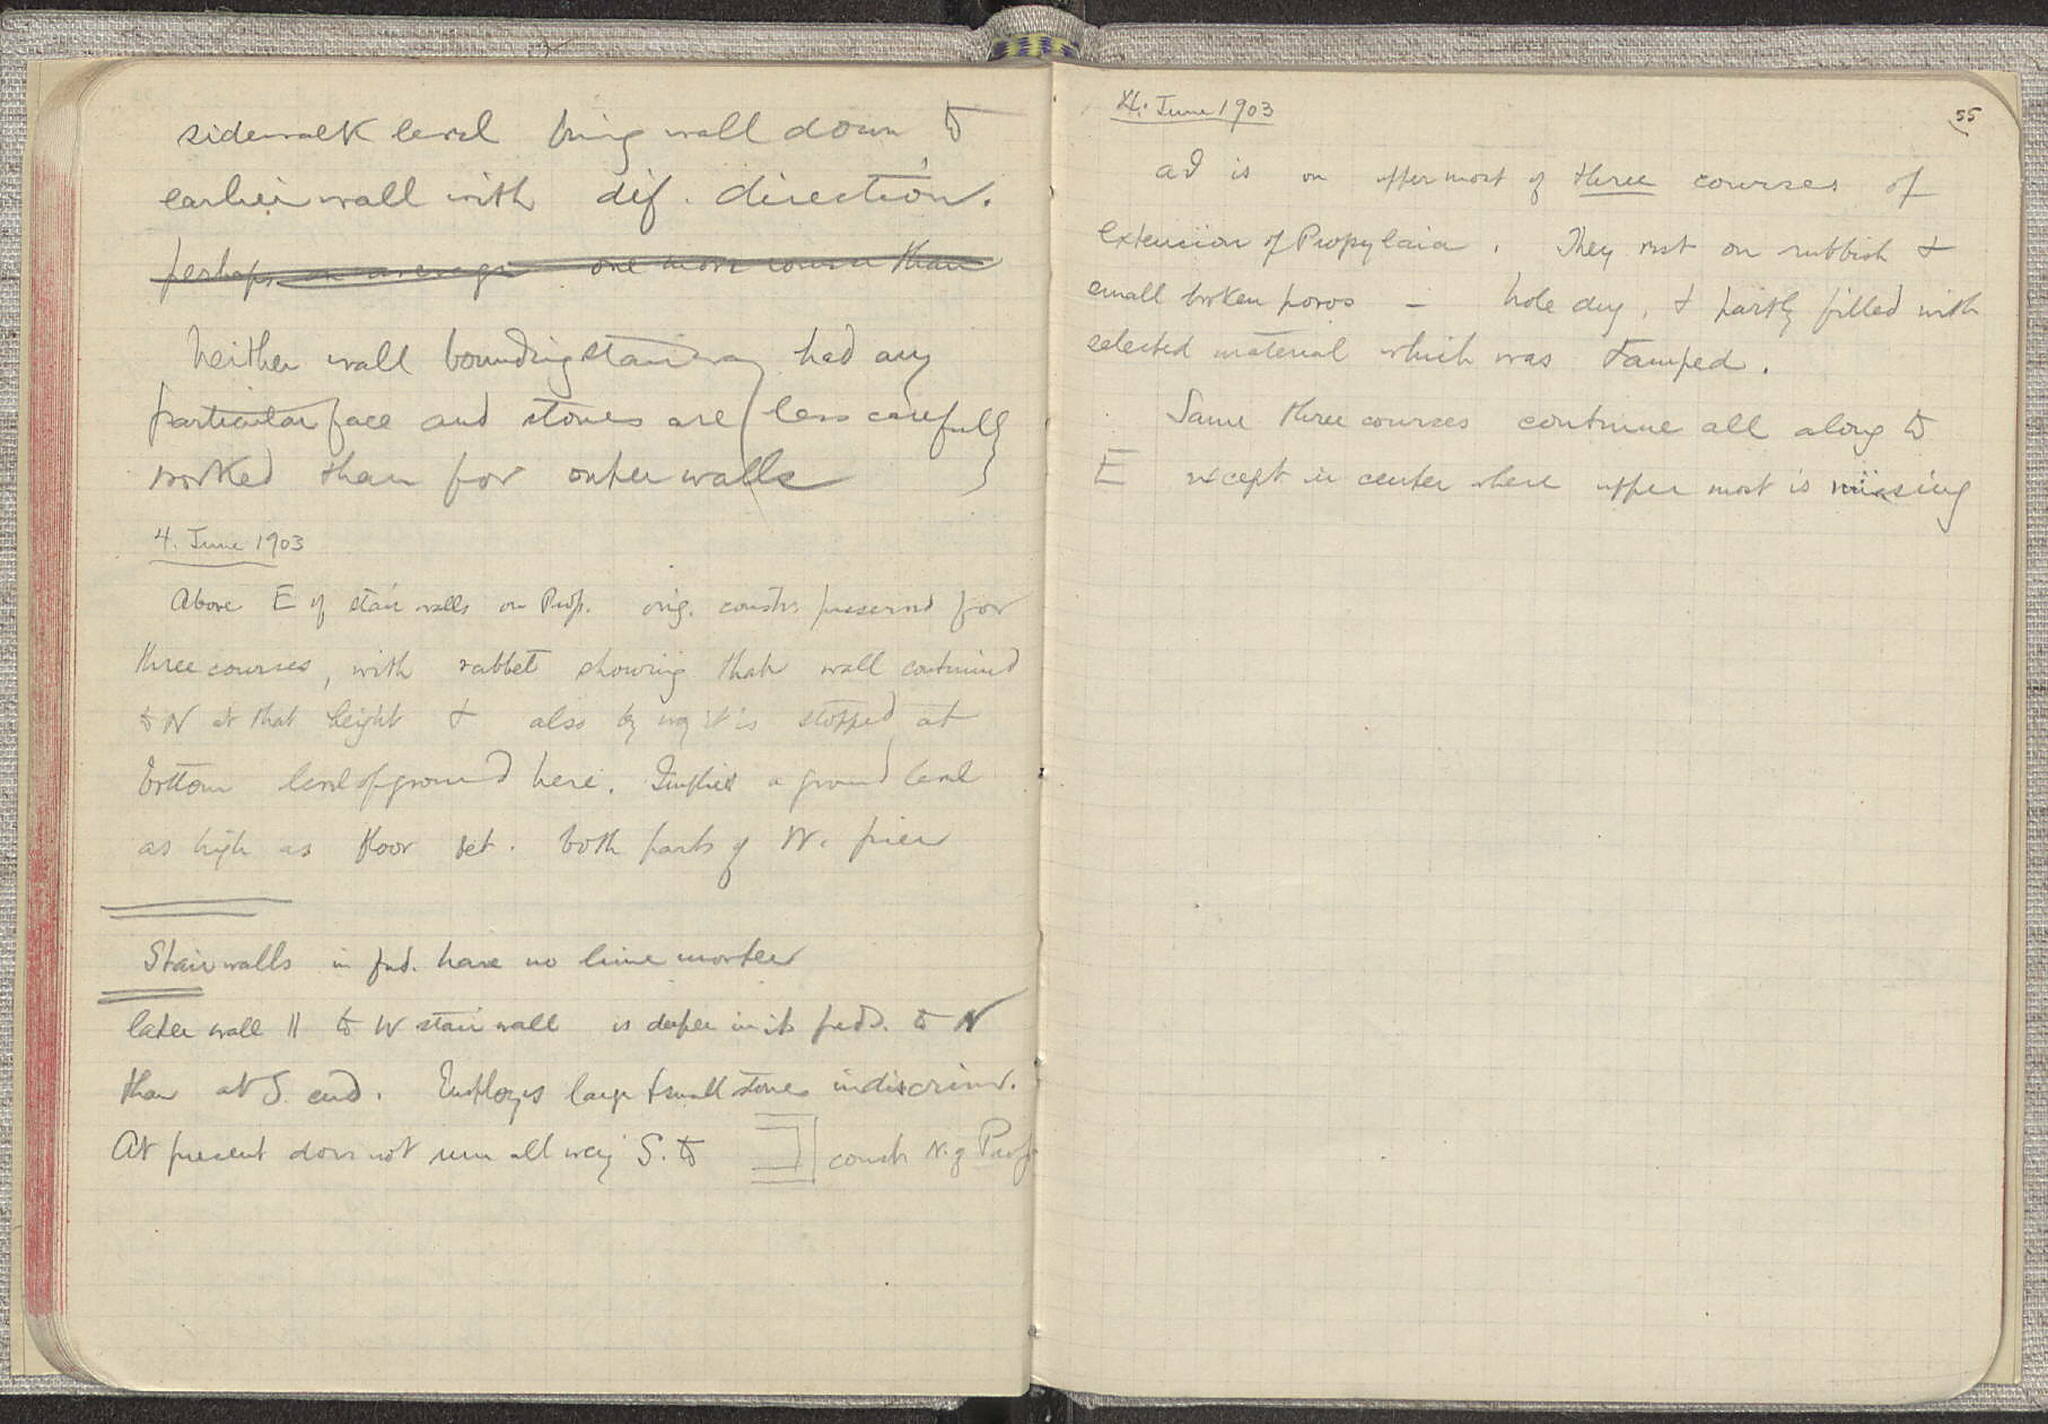 sidewalk level bring wall down to
earlier wall with dif. direction.
perhaps on average one more course than
Neither wall bounding stairway had any
particular face and stones are (less carefully
worked than for outer walls)
4. June 1903
Above E of stair walls on Prop. orig. constr. preserved for
three courses, with rabbet showing that wall continued
to N at that height & also by it is stopped at
bottom level of ground here. Implies a ground level
as high as floor bet. both parts of W. pier
Stair walls in fnd. have no lime morter
later wall || to W stair wall is deeper in its fnds. to N
than at S. end. Employs large & small stones indiscrim.
At present does not run all way S. to constr N. of Prop
4. June 1903
55
ad is on uppermost of three courses of
extension of Propylaia. They rest on rubbish &
small broken poros — hole dug, & partly filled with
selected material which was tamped.
Same three courses continue all along to
E except in center where upper most is missing